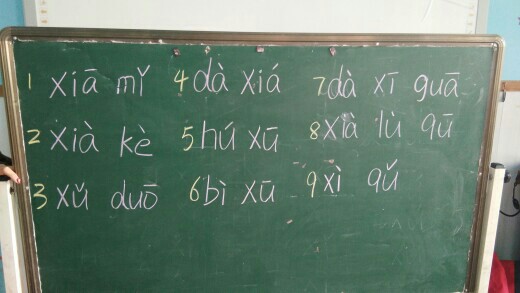 1 xiā mǐ 4 dà xiá 7 dà xī guā
2 xià kè 5 hú xū 8 xià lù qū
3 xǔ duō 6 bì xū 9 xì qǔ